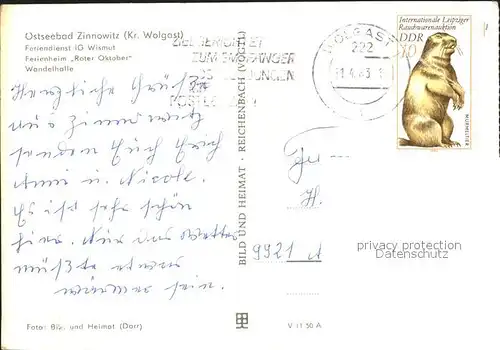 Ostseebad Zinnowitz (Kr. Wolgast)
Feriendienst IG Wismut
Ferienheim „Roter Oktober"
Wandelhalle
Herzliche Grüße
aus Zinnowitz
senden Euch Erich
Anni u. Nicole.
Es ist sehr schön
hier. Nur das Wetter
müßte etwas
wärmer sein.
Foto: Bild und Heimat (Darr)
BILD UND HEIMAT · REICHENBACH (VOGTL)
V 11 50 A
ZUM EMPFÄNGER
WOLGAST
222
Internationale Leipziger
Rauchwarenauktion
DDR
10
MURMELTIER
9921 A
privacy protection
Datenschutz